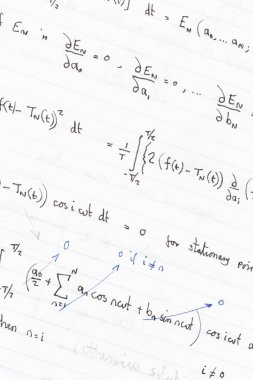 ] dt = E_N (a_0, ... a_N,
if E_N is ∂E_N/∂a_0 = 0, ∂E_N/∂a_1 = 0, ... ∂E_N/∂b_N
f(t) - T_N(t))² dt = 1/T ∫_{-T/2}^{T/2} { 2 (f(t) - T_N(t)) ∂/∂a_i (
) - T_N(t)) cos iωt dt = 0 for stationary poin
0 0 if i≠n 0
T/2 -T/2 ( a_0/2 + Σ_{n=1}^{N} a_n cos nωt + b_n sin nωt ) cos iωt d
hen n=i i≠0